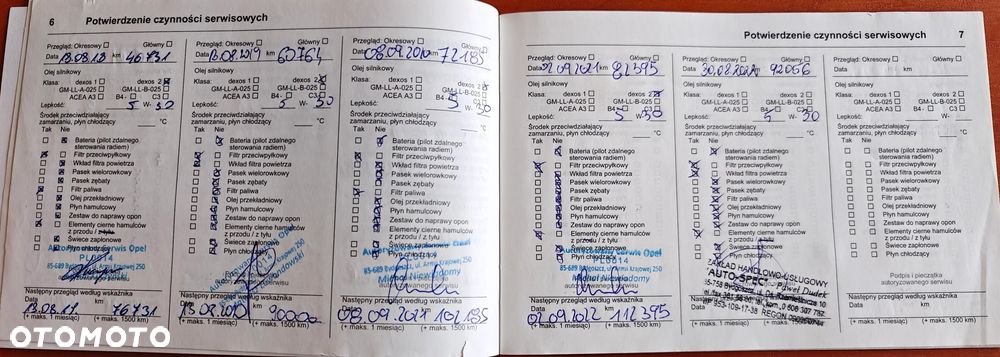 6 Potwierdzenie czynności serwisowych
Przegląd: Okresowy Główny
Data 13.08.18 km 46731
Olej silnikowy
Klasa: dexos 1 dexos 2
GM-LL-A-025 GM-LL-B-025
ACEA A3 B4- C3
Lepkość: 5 W- 30
Środek przeciwdziałający
zamarzaniu, płyn chłodzący °C
Tak Nie
Bateria (pilot zdalnego
sterowania radiem)
Filtr przeciwpyłkowy
Wkład filtra powietrza
Pasek wielorowkowy
Pasek zębaty
Filtr paliwa
Olej przekładniowy
Płyn hamulcowy
Zestaw do naprawy opon
Elementy cierne hamulców
z przodu / z tyłu
Świece zapłonowe
Płyn chłodzący
Serwis Opel
Następny przegląd według wskaźnika
Data km
13.08.19 76731
(+ maks. 1 miesiąc) (+ maks. 1500 km)
Przegląd: Okresowy Główny
Data 13.08.2019 km 60764
Olej silnikowy
Klasa: dexos 1 dexos 2
GM-LL-A-025 GM-LL-B-025
ACEA A3 B4- C3
Lepkość: 5 W- 30
Środek przeciwdziałający
zamarzaniu, płyn chłodzący °C
Tak Nie
Bateria (pilot zdalnego
sterowania radiem)
Filtr przeciwpyłkowy
Wkład filtra powietrza
Pasek wielorowkowy
Pasek zębaty
Filtr paliwa
Olej przekładniowy
Płyn hamulcowy
Zestaw do naprawy opon
Elementy cierne hamulców
z przodu / z tyłu
Świece zapłonowe
Płyn chłodzący
Następny przegląd według wskaźnika
Data km
13.08.2020 90000
(+ maks. 1 miesiąc) (+ maks. 1500 km)
Przegląd: Okresowy Główny
Data 08.09.2020 km 72185
Olej silnikowy
Klasa: dexos 1 dexos 2
GM-LL-A-025 GM-LL-B-025
ACEA A3 B4- C3
Lepkość: 5 W- 30
Środek przeciwdziałający
zamarzaniu, płyn chłodzący °C
Tak Nie
Bateria (pilot zdalnego
sterowania radiem)
Filtr przeciwpyłkowy
Wkład filtra powietrza
Pasek wielorowkowy
Pasek zębaty
Filtr paliwa
Olej przekładniowy
Płyn hamulcowy
Zestaw do naprawy opon
Elementy cierne hamulców
z przodu / z tyłu
Świece zapłonowe
Płyn chłodzący
PL0614
85-689 Bydgoszcz, ul. Armii Krajowej 250
Michał Niewiadomy
Następny przegląd według wskaźnika
Data km
08.09.2021 102185
(+ maks. 1 miesiąc) (+ maks. 1500 km)
Potwierdzenie czynności serwisowych 7
Przegląd: Okresowy Główny
Data 02.09.2021 km 82395
Olej silnikowy
Klasa: dexos 1 dexos 2
GM-LL-A-025 GM-LL-B-025
ACEA A3 B4- C3
Lepkość: 5 W- 30
Środek przeciwdziałający
zamarzaniu, płyn chłodzący °C
Tak Nie
Bateria (pilot zdalnego
sterowania radiem)
Filtr przeciwpyłkowy
Wkład filtra powietrza
Pasek wielorowkowy
Pasek zębaty
Filtr paliwa
Olej przekładniowy
Płyn hamulcowy
Zestaw do naprawy opon
Elementy cierne hamulców
z przodu / z tyłu
Świece zapłonowe
Płyn chłodzący
Serwis Opel
PL0614
85-689 Bydgoszcz, ul. Armii Krajowej 250
Michał Niewiadomy
Następny przegląd według wskaźnika
Data km
02.09.2022 112395
(+ maks. 1 miesiąc) (+ maks. 1500 km)
Przegląd: Okresowy Główny
Data km 92056
Olej silnikowy
Klasa: dexos 1 dexos 2
GM-LL-A-025 GM-LL-B-025
ACEA A3 B4- C3
Lepkość: 5 W- 30
Środek przeciwdziałający
zamarzaniu, płyn chłodzący °C
Tak Nie
Bateria (pilot zdalnego
sterowania radiem)
Filtr przeciwpyłkowy
Wkład filtra powietrza
Pasek wielorowkowy
Pasek zębaty
Filtr paliwa
Olej przekładniowy
Płyn hamulcowy
Zestaw do naprawy opon
Elementy cierne hamulców
z przodu / z tyłu
Świece zapłonowe
ZAKŁAD HANDLOWO-USŁUGOWY
Paweł Dudek
Następny przegląd według wskaźnika
(+ maks. 1 miesiąc) (+ maks. 1500 km)
Przegląd: Okresowy Główny
Data km
Olej silnikowy
Klasa: dexos 1 dexos 2
GM-LL-A-025 GM-LL-B-025
ACEA A3 B4- C3
Lepkość: W-
Środek przeciwdziałający
zamarzaniu, płyn chłodzący °C
Tak Nie
Bateria (pilot zdalnego
sterowania radiem)
Filtr przeciwpyłkowy
Wkład filtra powietrza
Pasek wielorowkowy
Pasek zębaty
Filtr paliwa
Olej przekładniowy
Płyn hamulcowy
Zestaw do naprawy opon
Elementy cierne hamulców
z przodu / z tyłu
Świece zapłonowe
Płyn chłodzący
Podpis i pieczątka
autoryzowanego serwisu
Następny przegląd według wskaźnika
Data km
(+ maks. 1 miesiąc) (+ maks. 1500 km)
OTOMOTO